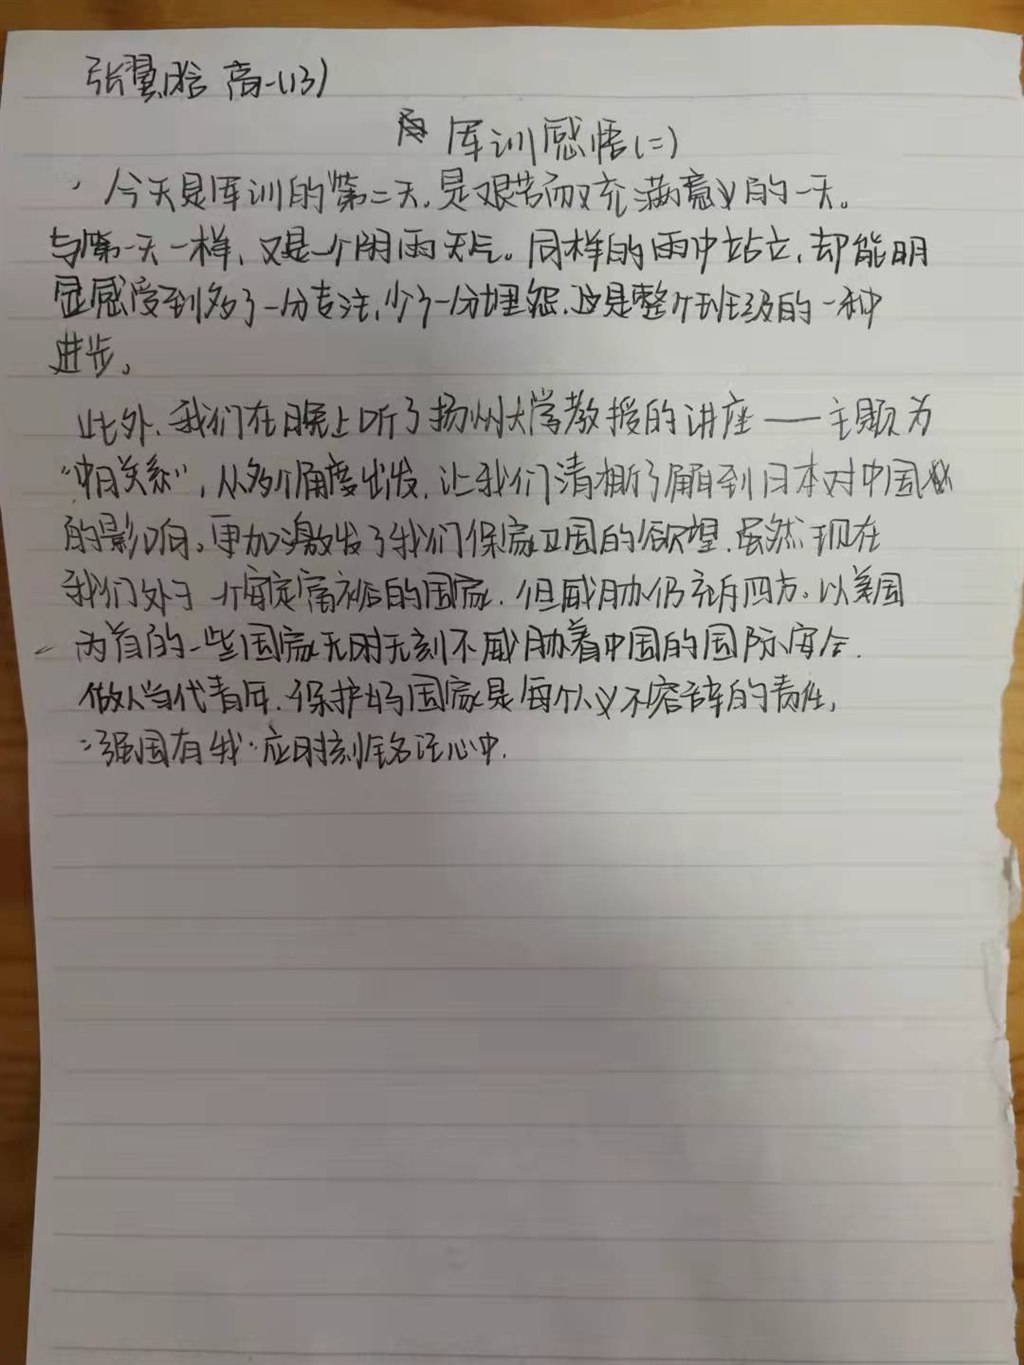 张翼晗 高一(13)
军训感悟(二)
今天是军训的第二天,是艰苦而又充满意义的一天。
与第一天一样,又是一个阴雨天气。同样的雨中站立,却能明
显感受到多了一分专注,少了一分埋怨,这是整个班级的一种
进步。
此外,我们在晚上听了扬州大学教授的讲座——主题为
“中日关系”,从多个角度出发,让我们清晰了解到日本对中国
的影响。更加激发了我们保家卫国的欲望。虽然现在
我们处于一个安定富裕的国家,但威胁仍充斥四方。以美国
为首的一些国家无时无刻不威胁着中国的国际安全.
做当代青年,保护好国家是每个人义不容辞的责任,
“强国有我”应时刻铭记心中.